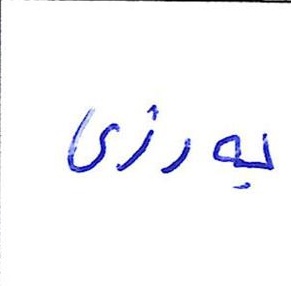 بەرزی